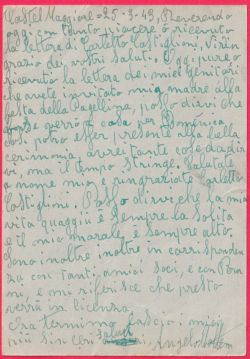 Castel Maggiore - 25-3-43, Reverendo
oggi con tanto piacere ò ricevuto
la lettera di Carletto Castiglioni, Vi rin
grazio dei vostri saluti. Oggi pure ò
ricevuto la lettera dei miei genitori
che avete invitato mia madre alla
festa della Pagellina, posso dirvi che
forse verrò a casa per Domenica,
così potrò esser presente alla bella
cerimonia, avrei tante cose da dir
vi, ma il tempo stringe. Salutate
a nome mio e ringraziate Carletto
Castiglioni. Posso dirvi che la mia
vita quaggiù è sempre la solita
e il mio morale è sempre alto.
Sono inoltre in corrisponden
za con tanti amici soci, e con
ni, e mi riferisce che presto
verrà in licenza.
Ora termino lascio i miei
più sinceri saluti Angelo